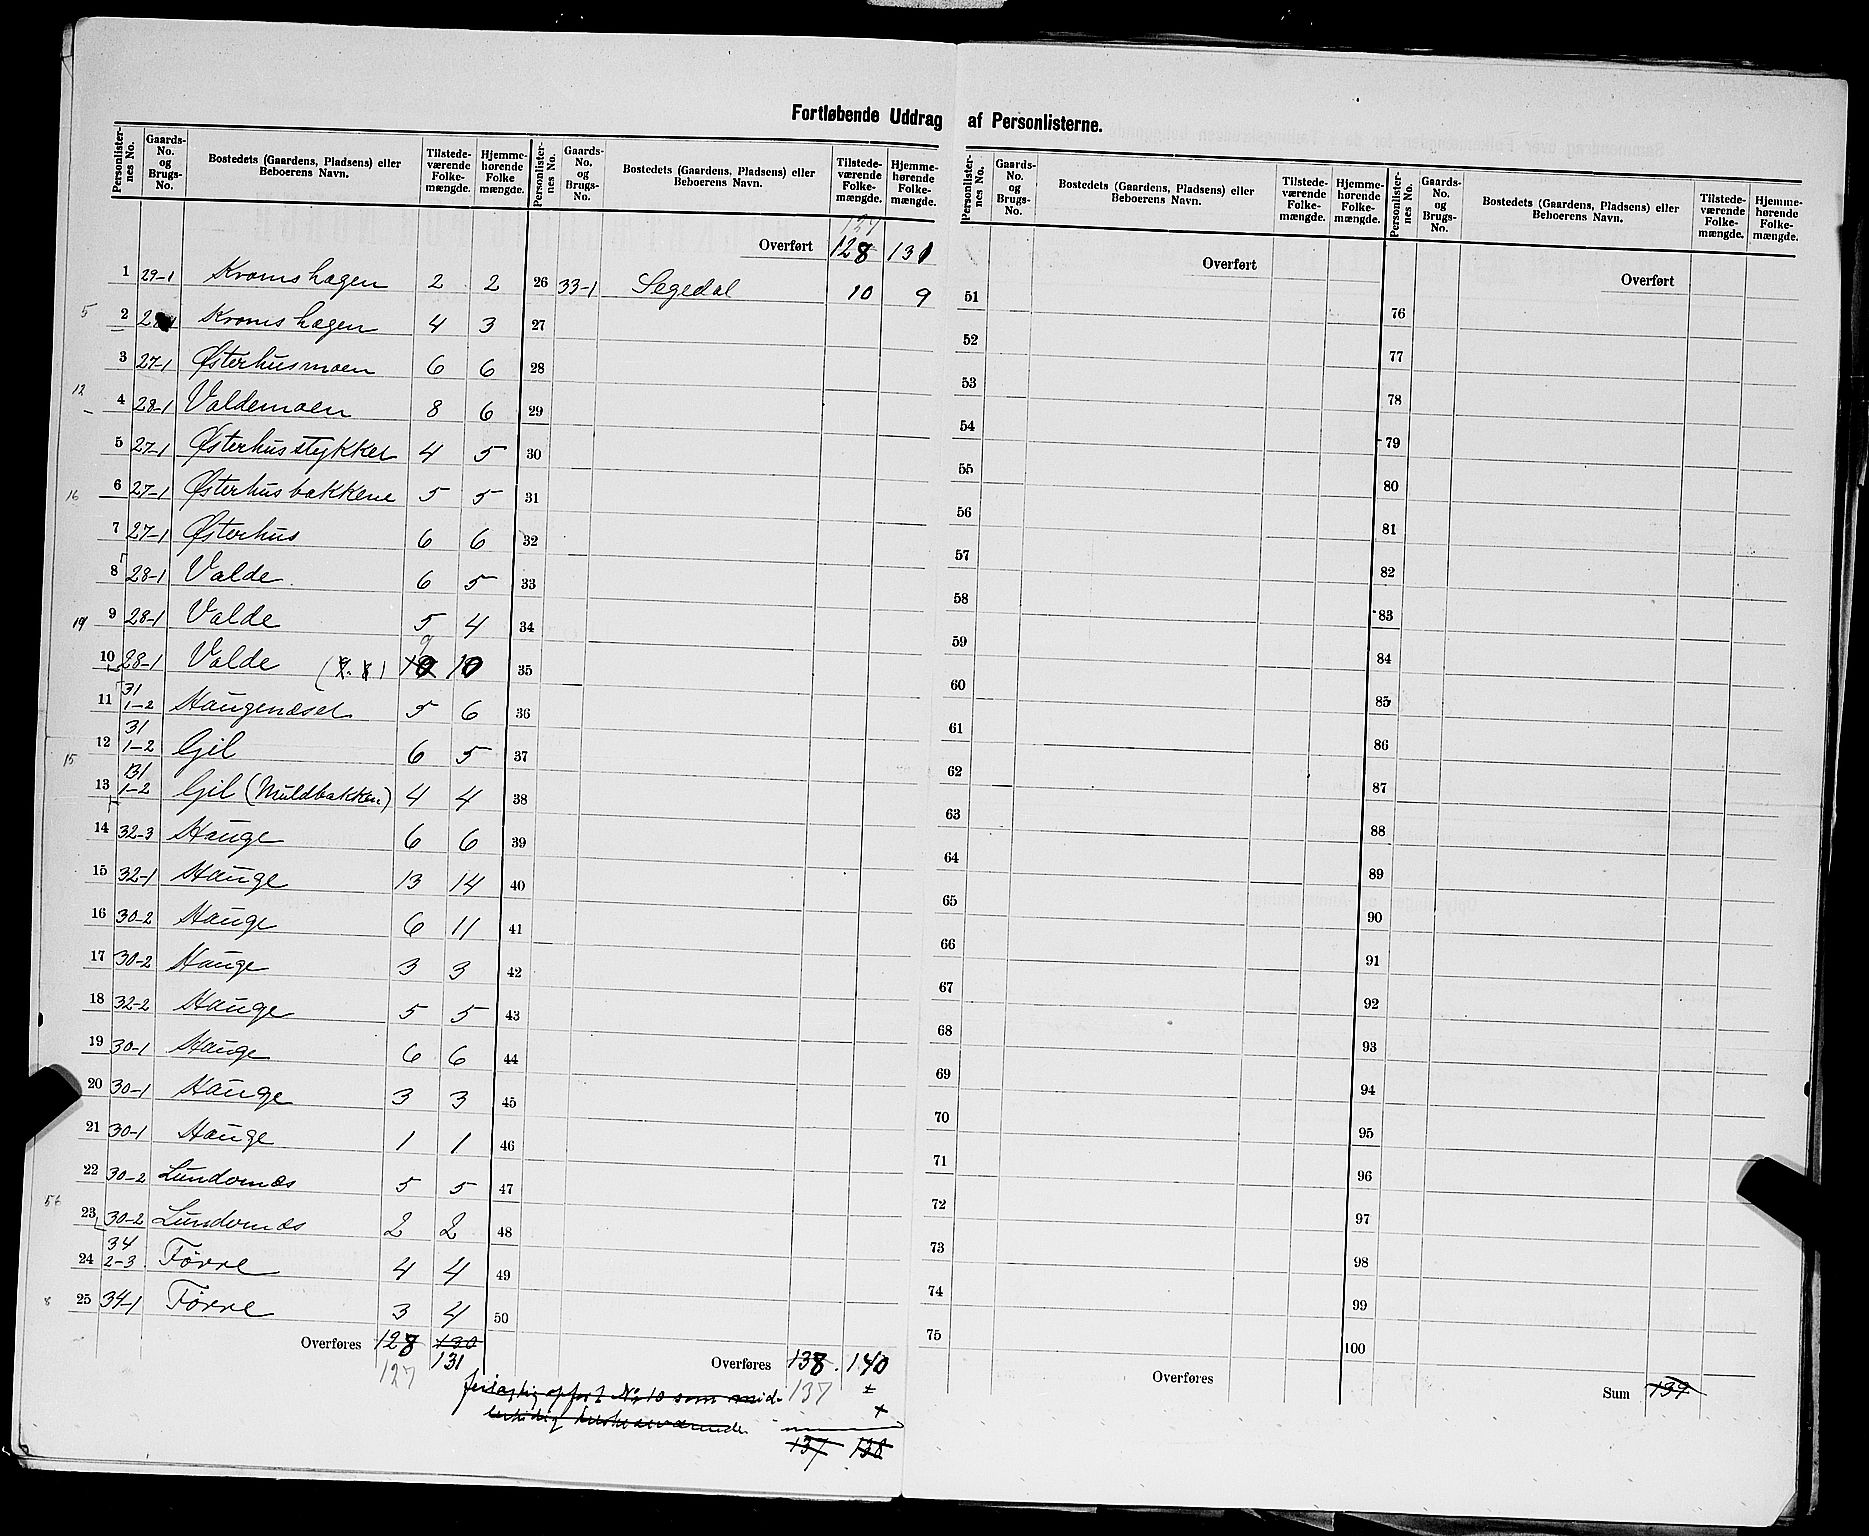 Fortløbende Uddrag af Personlisterne.
Personlister-nes No. | Gaards-No. og Brugs-No. | Bostedets (Gaardens, Pladsens) eller Beboerens Navn. | Tilstede-værende Folke-mængde. | Hjemme-hørende Folke mængde.
1 29-1 Kromshagen 2 2
5
2 Kromshagen 4 3
3 27-1 Østerhusmoen 6 6
12
4 28-1 Valdemoen 8 6
5 27-1 Østerhusstykket 4 5
16
6 27-1 Østerhusbakkene 5 5
7 27-1 Østerhus 6 6
8 28-1 Valde 6 5
19
9 28-1 Valde 5 4
9
10 28-1 Valde 10 10
11 31 1-2 Haugenæset 5 6
12 31 1-2 Gil 6 5
15
13 31 1-2 Gil (Muldbakken) 4 4
14 32-3 Hauge 6 6
15 32-1 Hauge 13 14
16 30-2 Hauge 6 11
17 30-2 Hauge 3 3
18 32-2 Hauge 5 5
19 30-1 Hauge 6 6
20 30-1 Hauge 3 3
21 30-1 Hauge 1 1
22 30-2 Lundernæs 5 5
56
23 30-2 Lundernæs 2 2
24 34 2-3 Førre 4 4
8
25 34-1 Førre 3 4
Overføres 128 130
127 131
Personlister-nes No. | Gaards-No. og Brugs-No. | Bostedets (Gaardens, Pladsens) eller Beboerens Navn. | Tilstede-værende Folke-mængde. | Hjemme-hørende Folke-mængde.
127
Overført 128 131
26 33-1 Segedal 10 9
27
28
29
30
31
32
33
34
35
36
37
38
39
40
41
42
43
44
45
46
47
48
49
50
Overføres 138 140
No 10 som mid- 137
137 138
Personlister-nes No. | Gaards-No. og Brugs-No. | Bostedets (Gaardens, Pladsens) eller Beboerens Navn. | Tilstede-værende Folke-mængde. | Hjemme-hørende Folke-mængde.
Overført
51
52
53
54
55
56
57
58
59
60
61
62
63
64
65
66
67
68
69
70
71
72
73
74
75
Overføres
Personlister-nes No. | Gaards-No. og Brugs-No. | Bostedets (Gaardens, Pladsens) eller Beboerens Navn. | Tilstede-værende Folke-mængde. | Hjemme-hørende Folke-mængde.
Overført
76
77
78
79
80
81
82
83
84
85
86
87
88
89
90
91
92
93
94
95
96
97
98
99
100
Sum 139